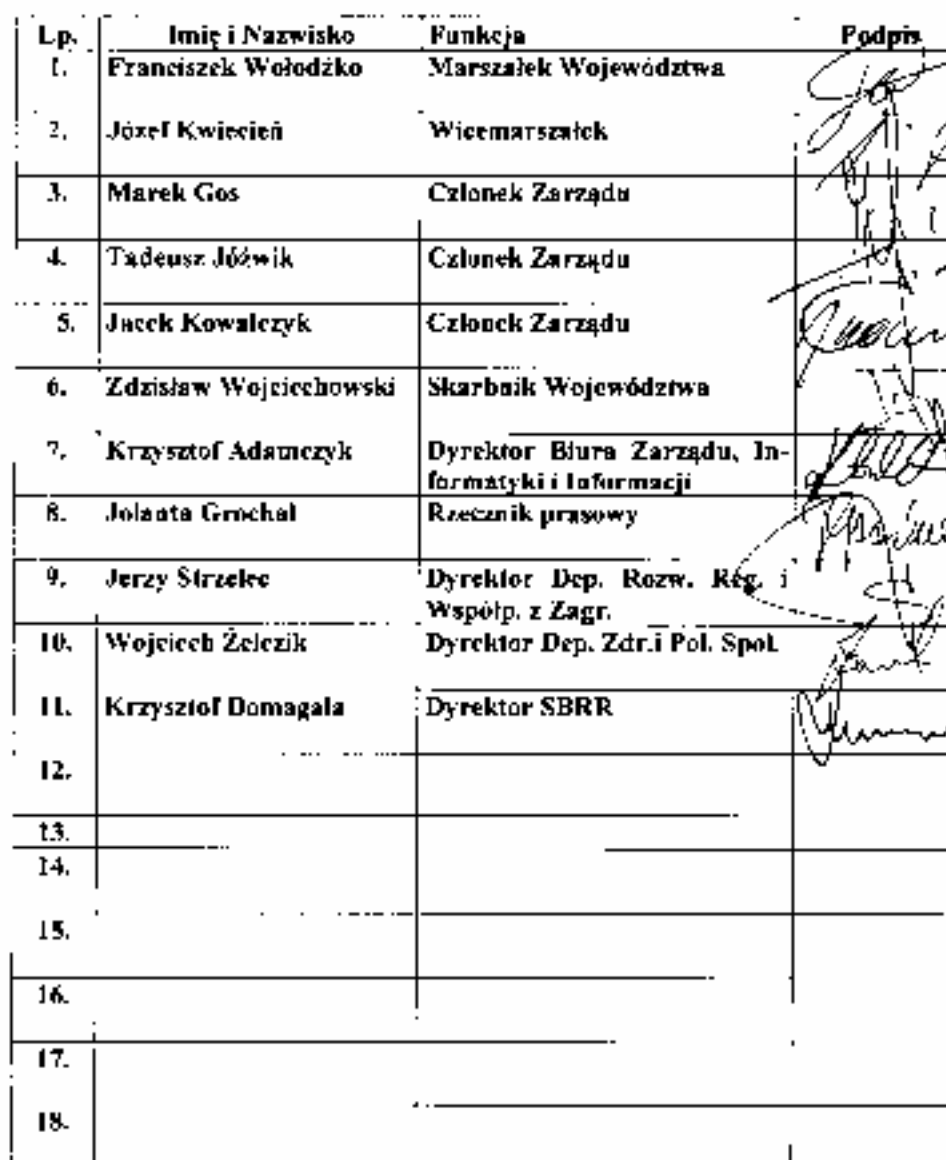 Lp. Imię i Nazwisko Funkcja Podpis
1. Franciszek Wołodźko Marszałek Województwa
2. Józef Kwiecień Wicemarszałek
3. Marek Gos Członek Zarządu
4. Tadeusz Jóźwik Członek Zarządu
5. Jacek Kowalczyk Członek Zarządu
6. Zdzisław Wojciechowski Skarbnik Województwa
7. Krzysztof Adamczyk Dyrektor Biura Zarządu, In-
formatyki i Informacji
8. Jolanta Grochal Rzecznik prasowy
9. Jerzy Strzelec Dyrektor Dep. Rozw. Reg. i
Współp. z Zagr.
10. Wojciech Żelezik Dyrektor Dep. Zdr.i Pol. Społ.
11. Krzysztof Domagała Dyrektor SBRR
12.
13.
14.
15.
16.
17.
18.